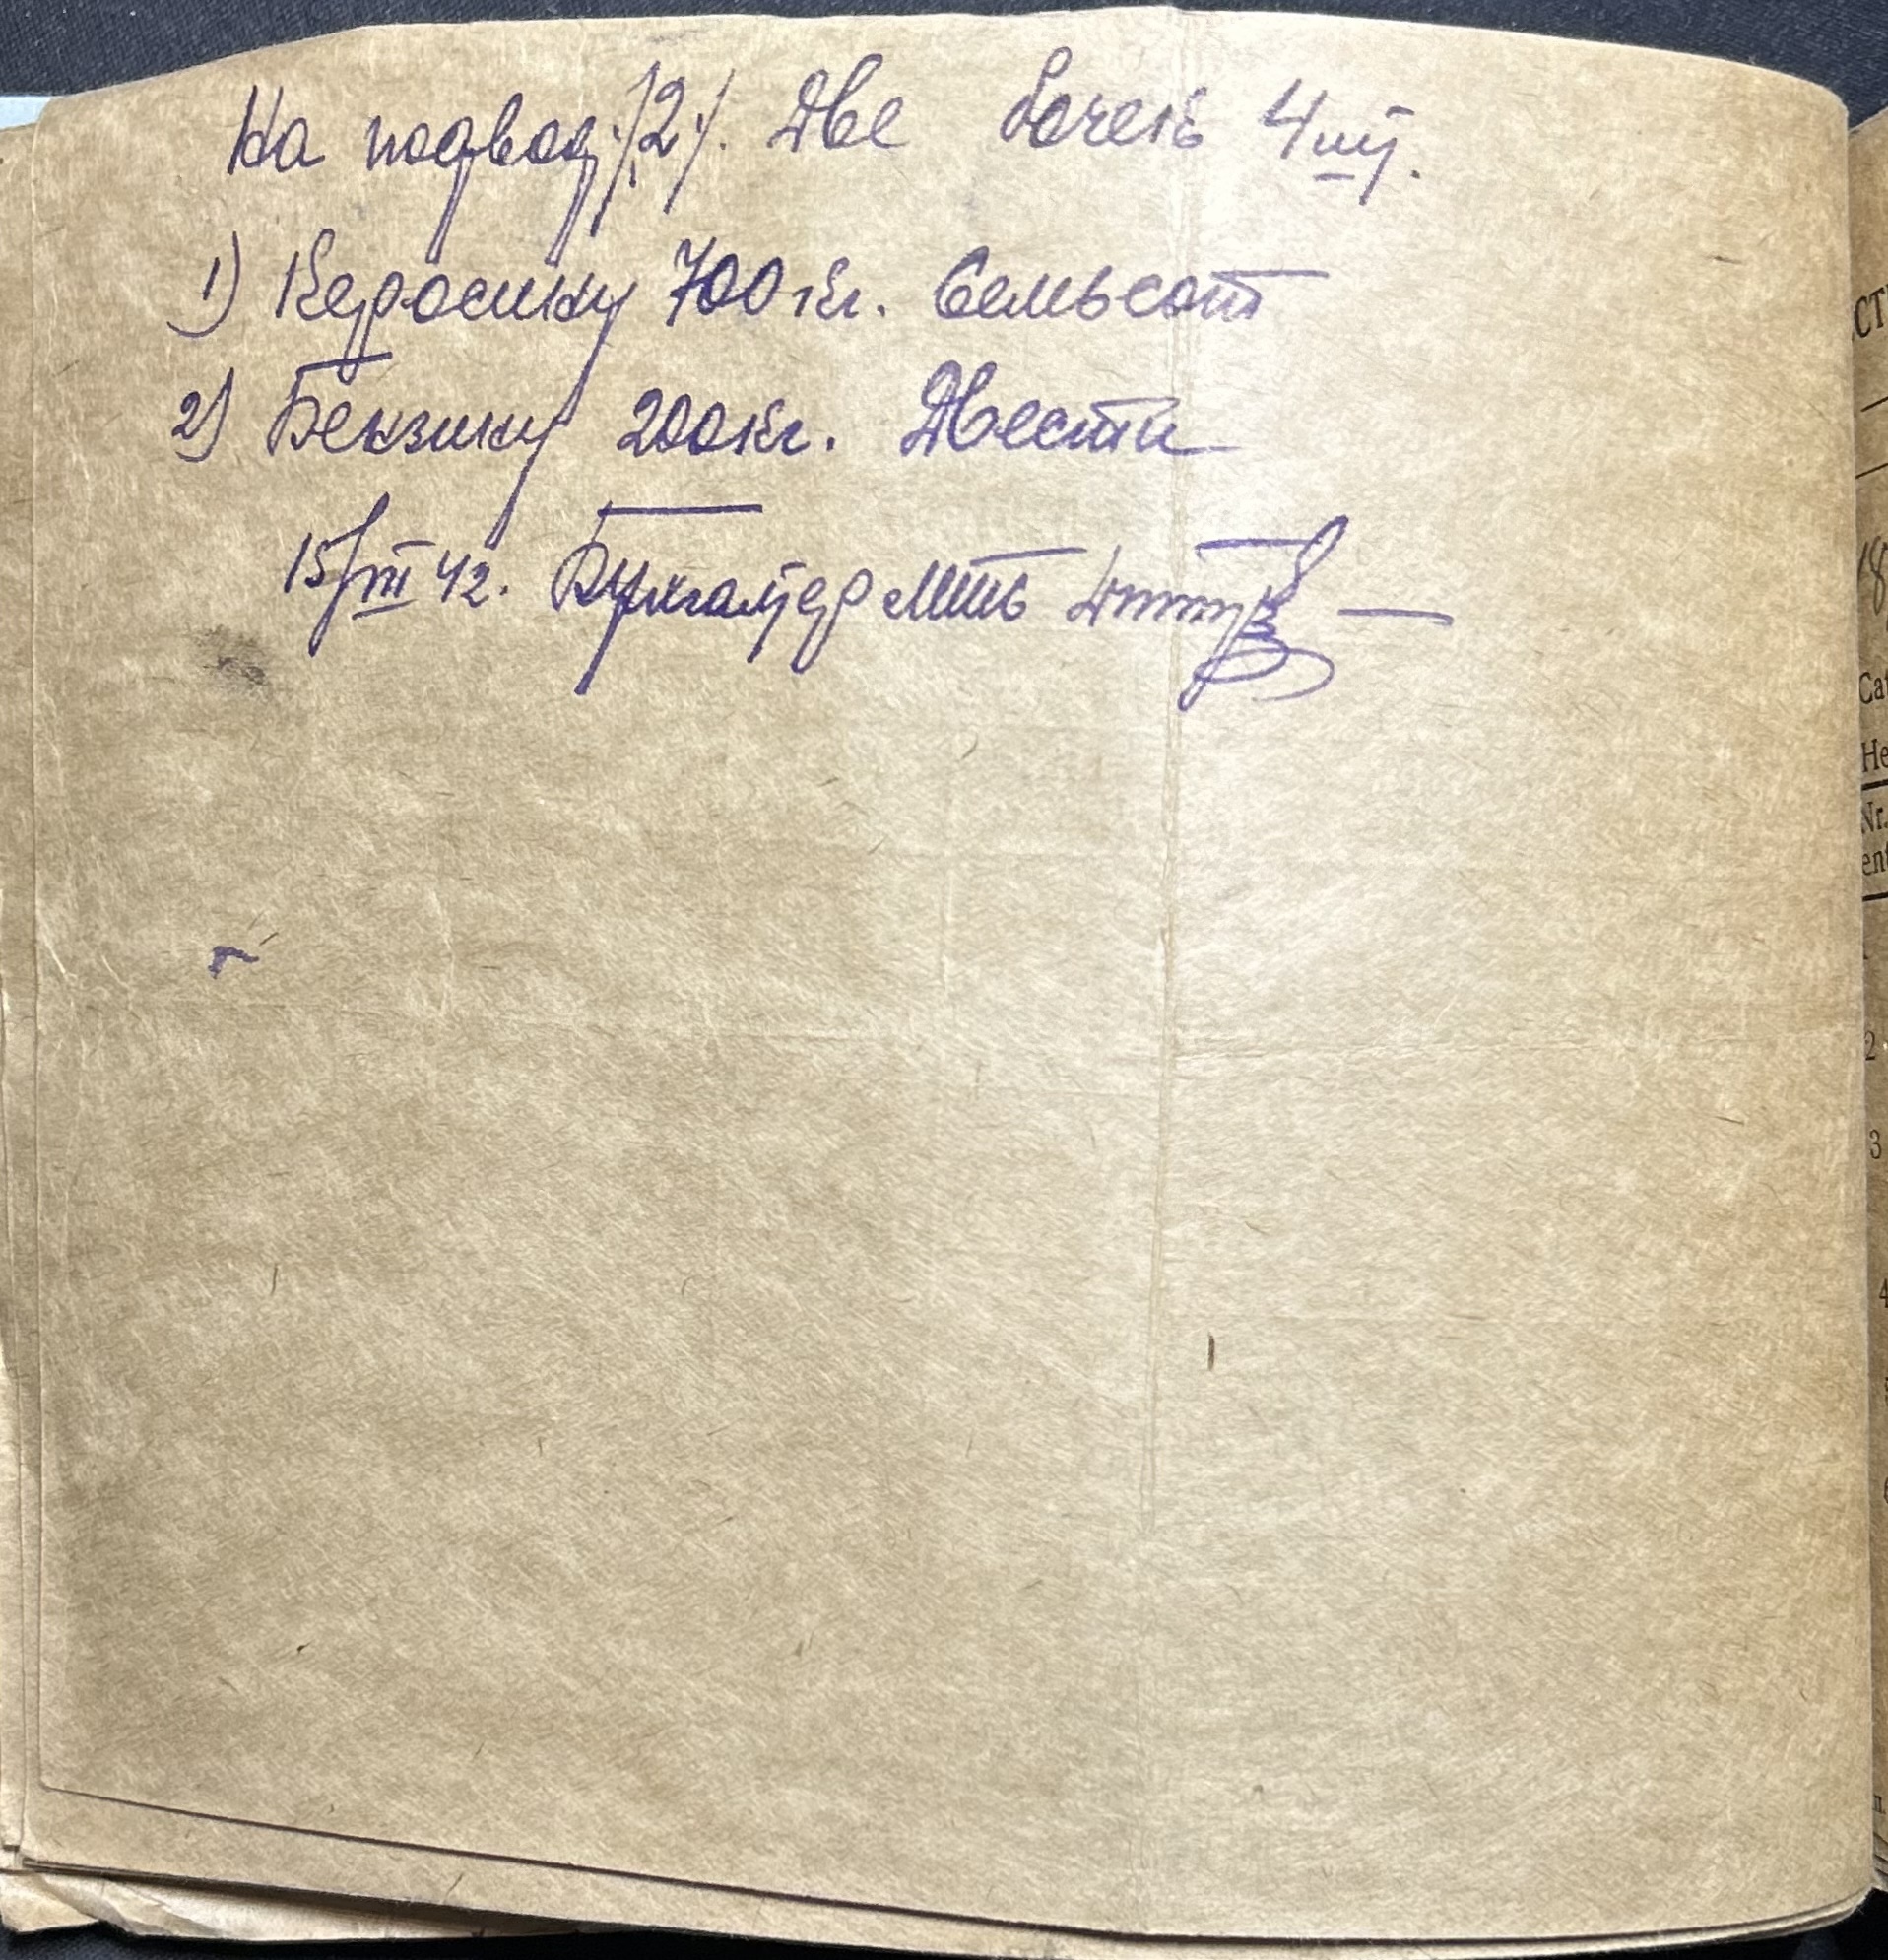 На подвод /2/. Две бочек 4 шт.
1) Керосину 700 кг. Семьсот
2) Бензину 200 кг. Двести
15/III 42. Бухгалтер МТС
СТ
Cat
He
Nr.
ent
2
3
4